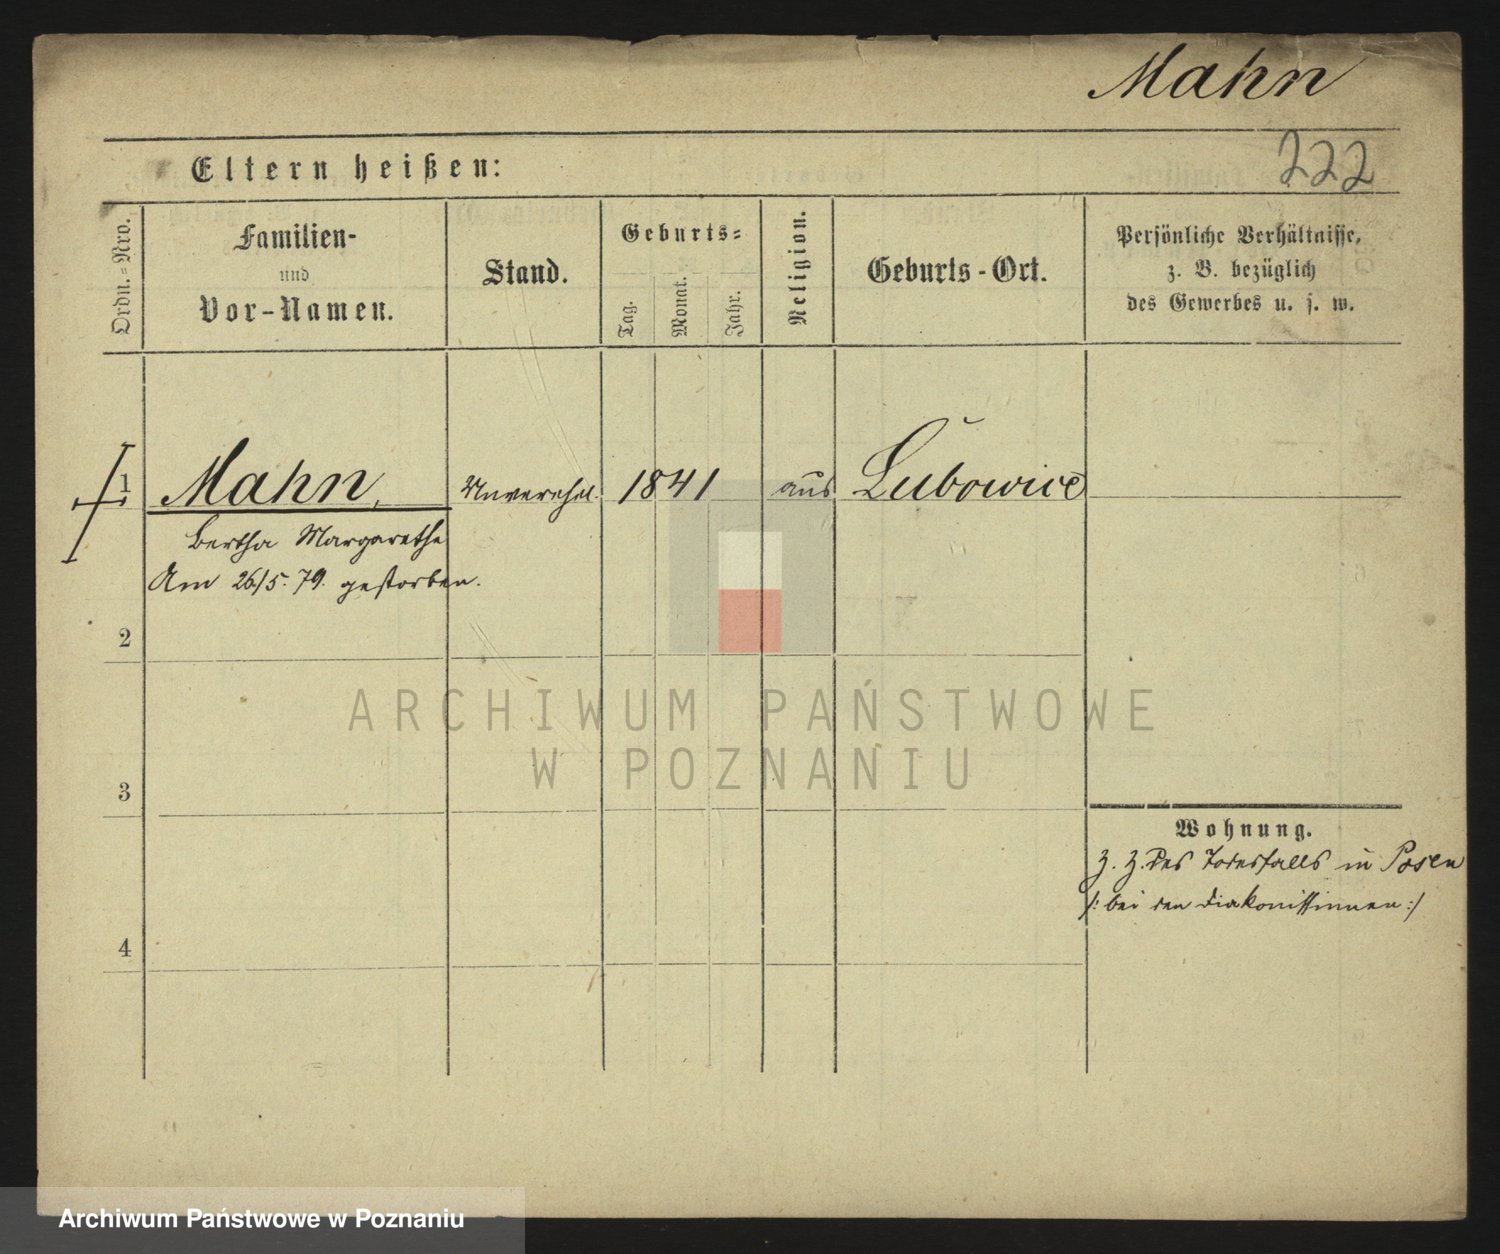 Mahn
222
Eltern heißen:
Ordn.=Nro.
Familien-
und
Vor-Namen.
Stand.
Geburts=
Tag.
Monat.
Jahr.
Religion.
Geburts-Ort.
Persönliche Verhältnisse,
z. B. bezüglich
des Gewerbes u. s. w.
1 Mahn, Unverehel. 1841 aus Lubowice
Bertha Margarethe
Am 26/5. 79. gestorben.
2
3
4
Wohnung.
z. Z. des Todesfalls in Posen
/: bei den Diakonissinnen :/
ARCHIWUM PAŃSTWOWE
W POZNANIU
Archiwum Państwowe w Poznaniu